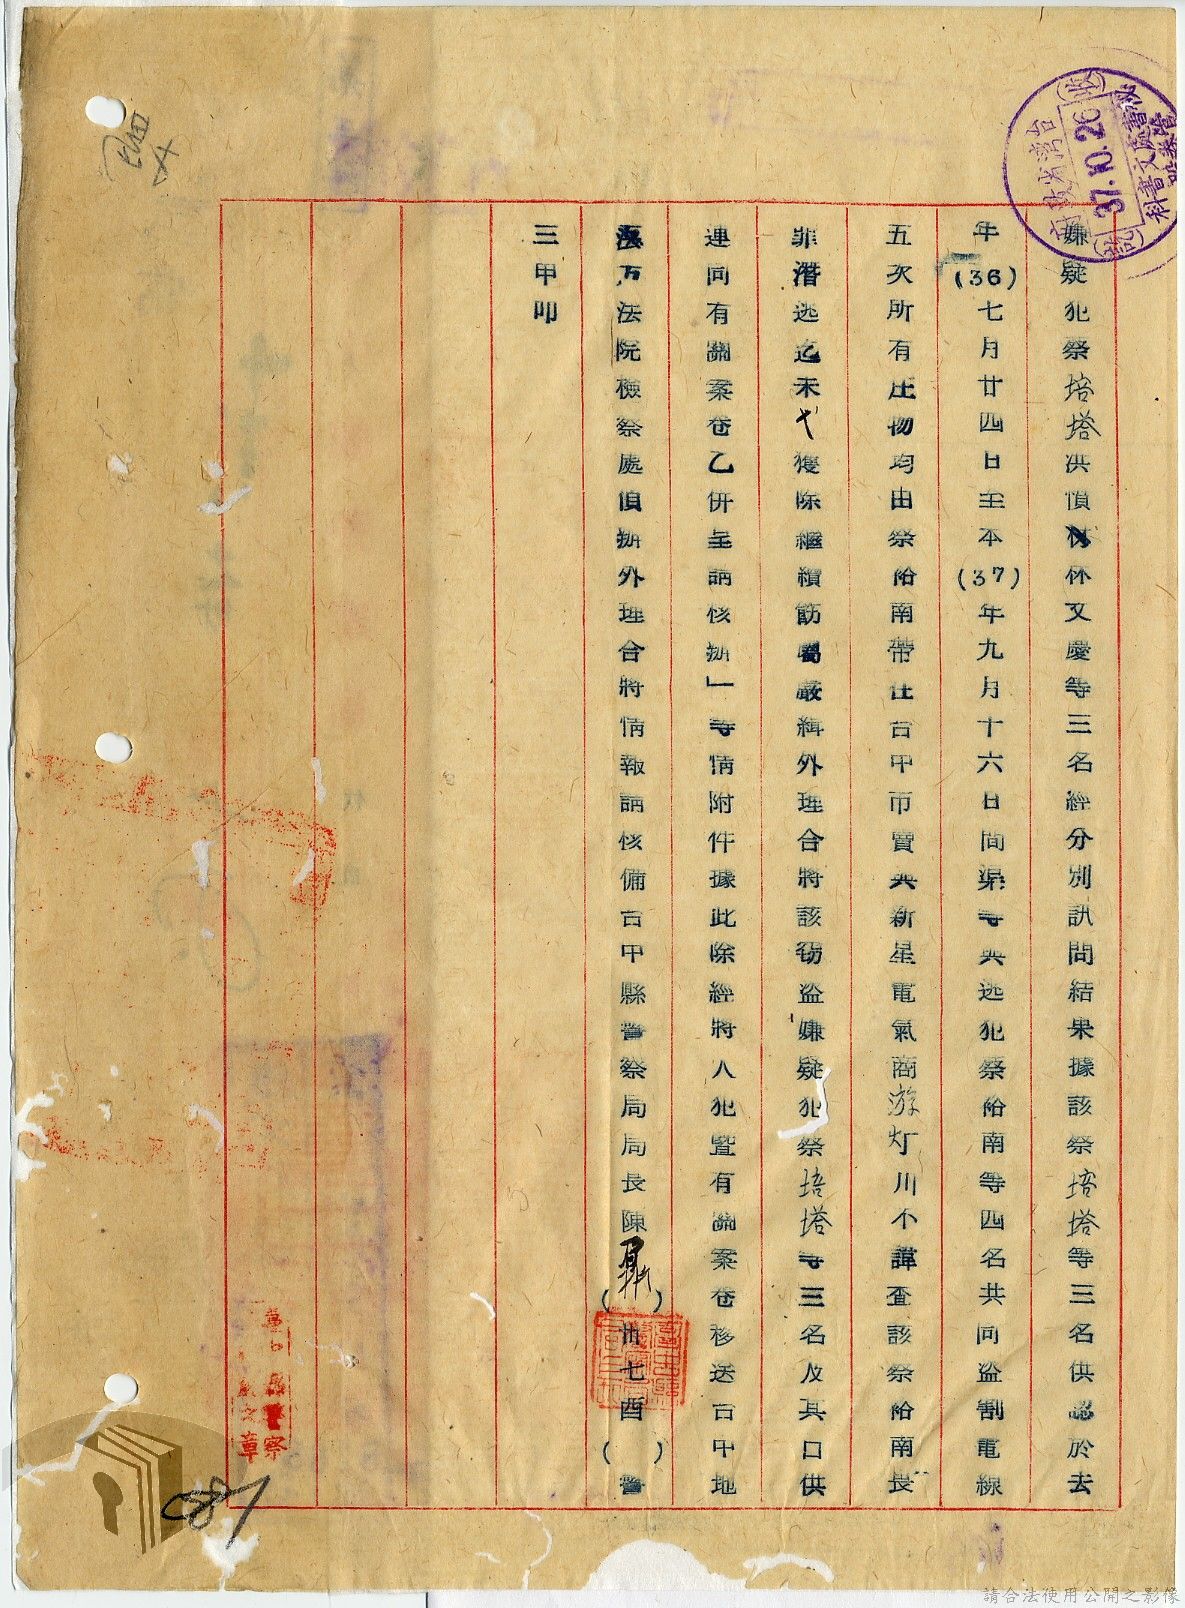 嫌疑犯蔡培塔洪慎林文慶等三名經分別訊問結果據該蔡培塔等三名供認於去
年(36)七月廿四日至本(37)年九月十六日間渠等與逃犯蔡裕南等四名共同盜割電線
五次所有庄物均由蔡裕南帶往台中市賣與新星電氣商游灯川不諱查該蔡裕南畏
罪潛逃迄未弋獲除繼續飭屬嚴緝外理合將該竊盜嫌疑犯蔡培塔等三名及其口供
連同有關案卷乙併呈請核辦」等情附件據此除經將人犯暨有關案卷移送台中地
方法院檢察處偵辦外理合將情報請核備台中縣警察局局長陳 ( )卅七酉( )警
三甲叩
台灣省政府
秘書處文書科
收
37.10.26
號
警察
之章
087
請合法使用公開之影像